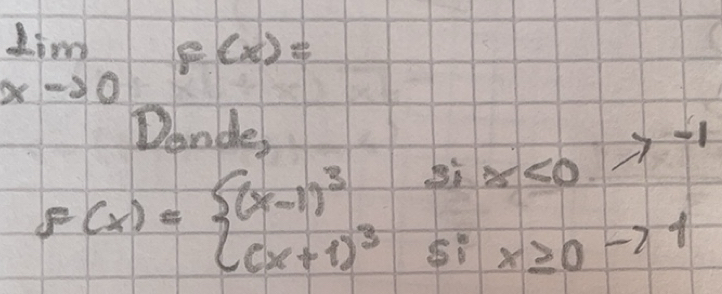 Lim F(x)=
x→0
Donde,
F(x) = { (x-1)³ si x<0 → -1
(x+1)³ si x≥0 → 1